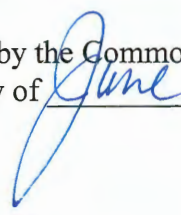 by the Commo
y of June